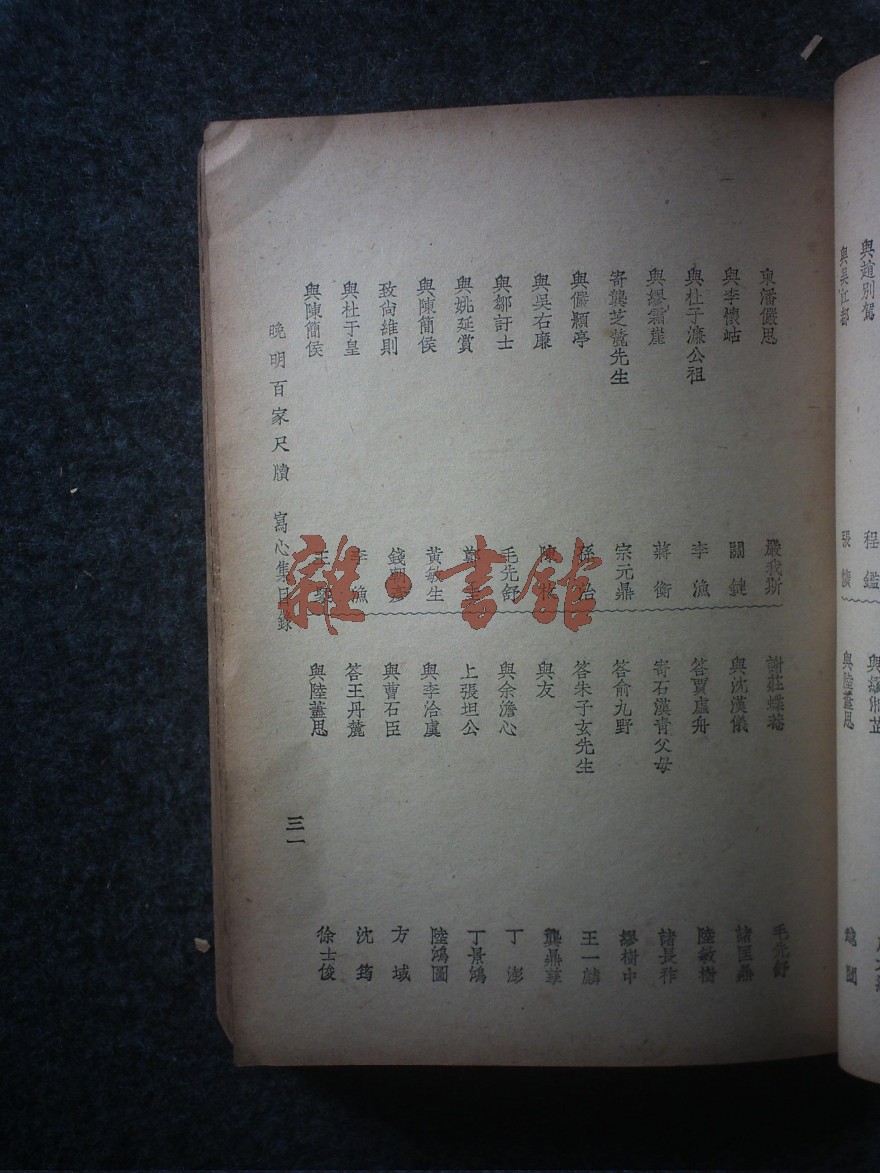 與趙別駕 程鑑
與吳江都 張
與陸藎思
柬潘儼思 嚴我斯
與李懷岵 關鍵
與杜子濂公祖 李漁
與繆霜崖 蔣衡
寄龔芝麓先生 宗元鼎
與儼顥亭 孫治
與吳右廉 陳枚
與鄒訏士 毛先舒
與姚延賞 鄭
與陳簡侯 黃敏生
致尙維則 錢朝彥
與杜于皇 李漁
與陳簡侯 王
謝莊蝶菴 毛先舒
與沈漢儀 諸匡鼎
答賈虛舟 陸敏樹
寄石漢青父母 諸長祚
答俞九野 繆樹中
答朱子玄先生 王一麟
與友 龔鼎孳
與余澹心 丁澎
上張坦公 丁景鴻
與李洽虞 陸鴻圖
與曹石臣 方域
答王丹麓 沈筠
與陸藎思 徐士俊
晚明百家尺牘 寫心集目錄
三一
雜·書館